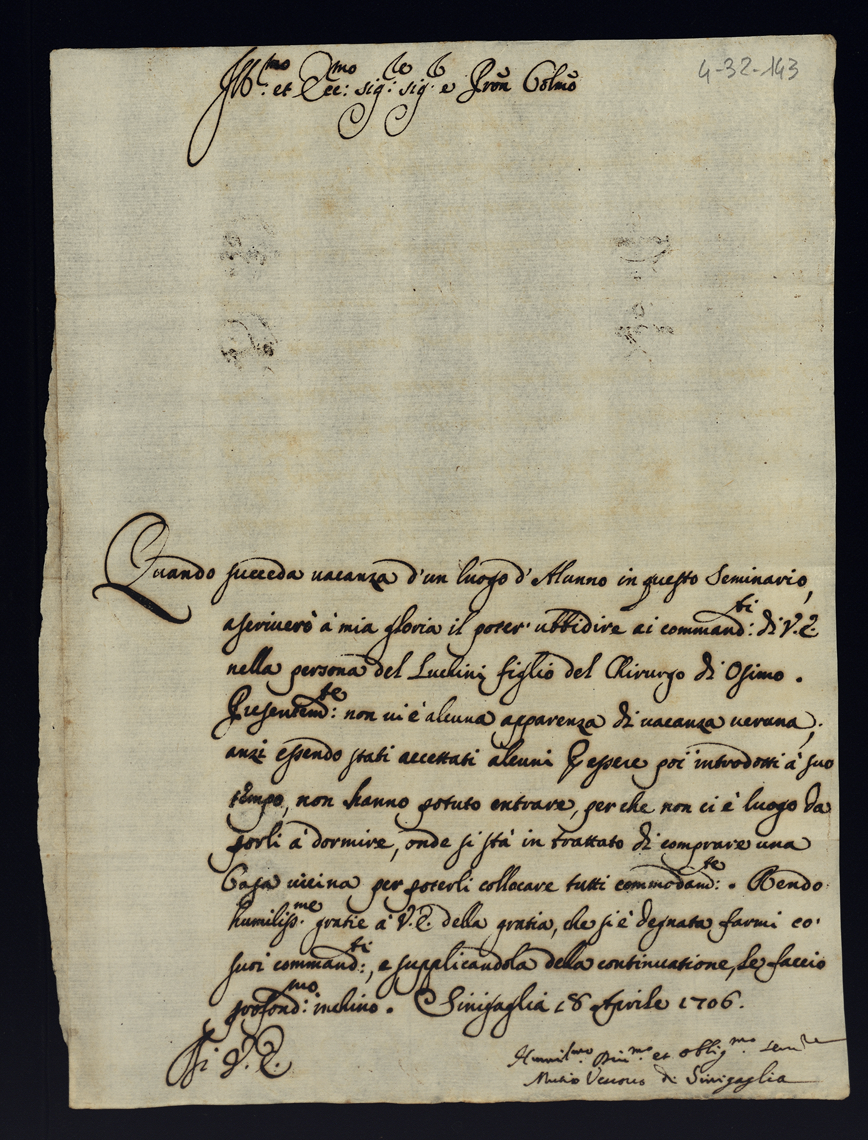 4-32-143
Ill.mo et Ecc.mo sig.re sig.r e Pron Colmo
Quando succeda vacanza d'un luogo d'Alunno in questo Seminario,
ascriverò à mia gloria il poter' ubbidire ai command:ti di V.E.
nella persona del Luchini figlio del Chirurgo di Osimo.
Presentem:te non vi è alcuna apparenza di vacanza veruna;
anzi essendo stati accettati alcuni p essere poi introdotti à suo
tempo, non hanno potuto entrare, per che non ci è luogo da
porli à dormire, onde si stà in trattato di comprare una
Casa vicina per poterli collocare tutti commodam:te. Rendo
humiliss:me gratie à V.E. della gratia, che si è degnata farmi co'
suoi command:ti, e supplicandola della continuatione, le faccio
profond:mo inchino. Sinigaglia 18 Aprile 1706.
Di V.E.
Humil.mo Div.mo et oblig.mo ser.re
Mutio Vescovo di Sinigaglia